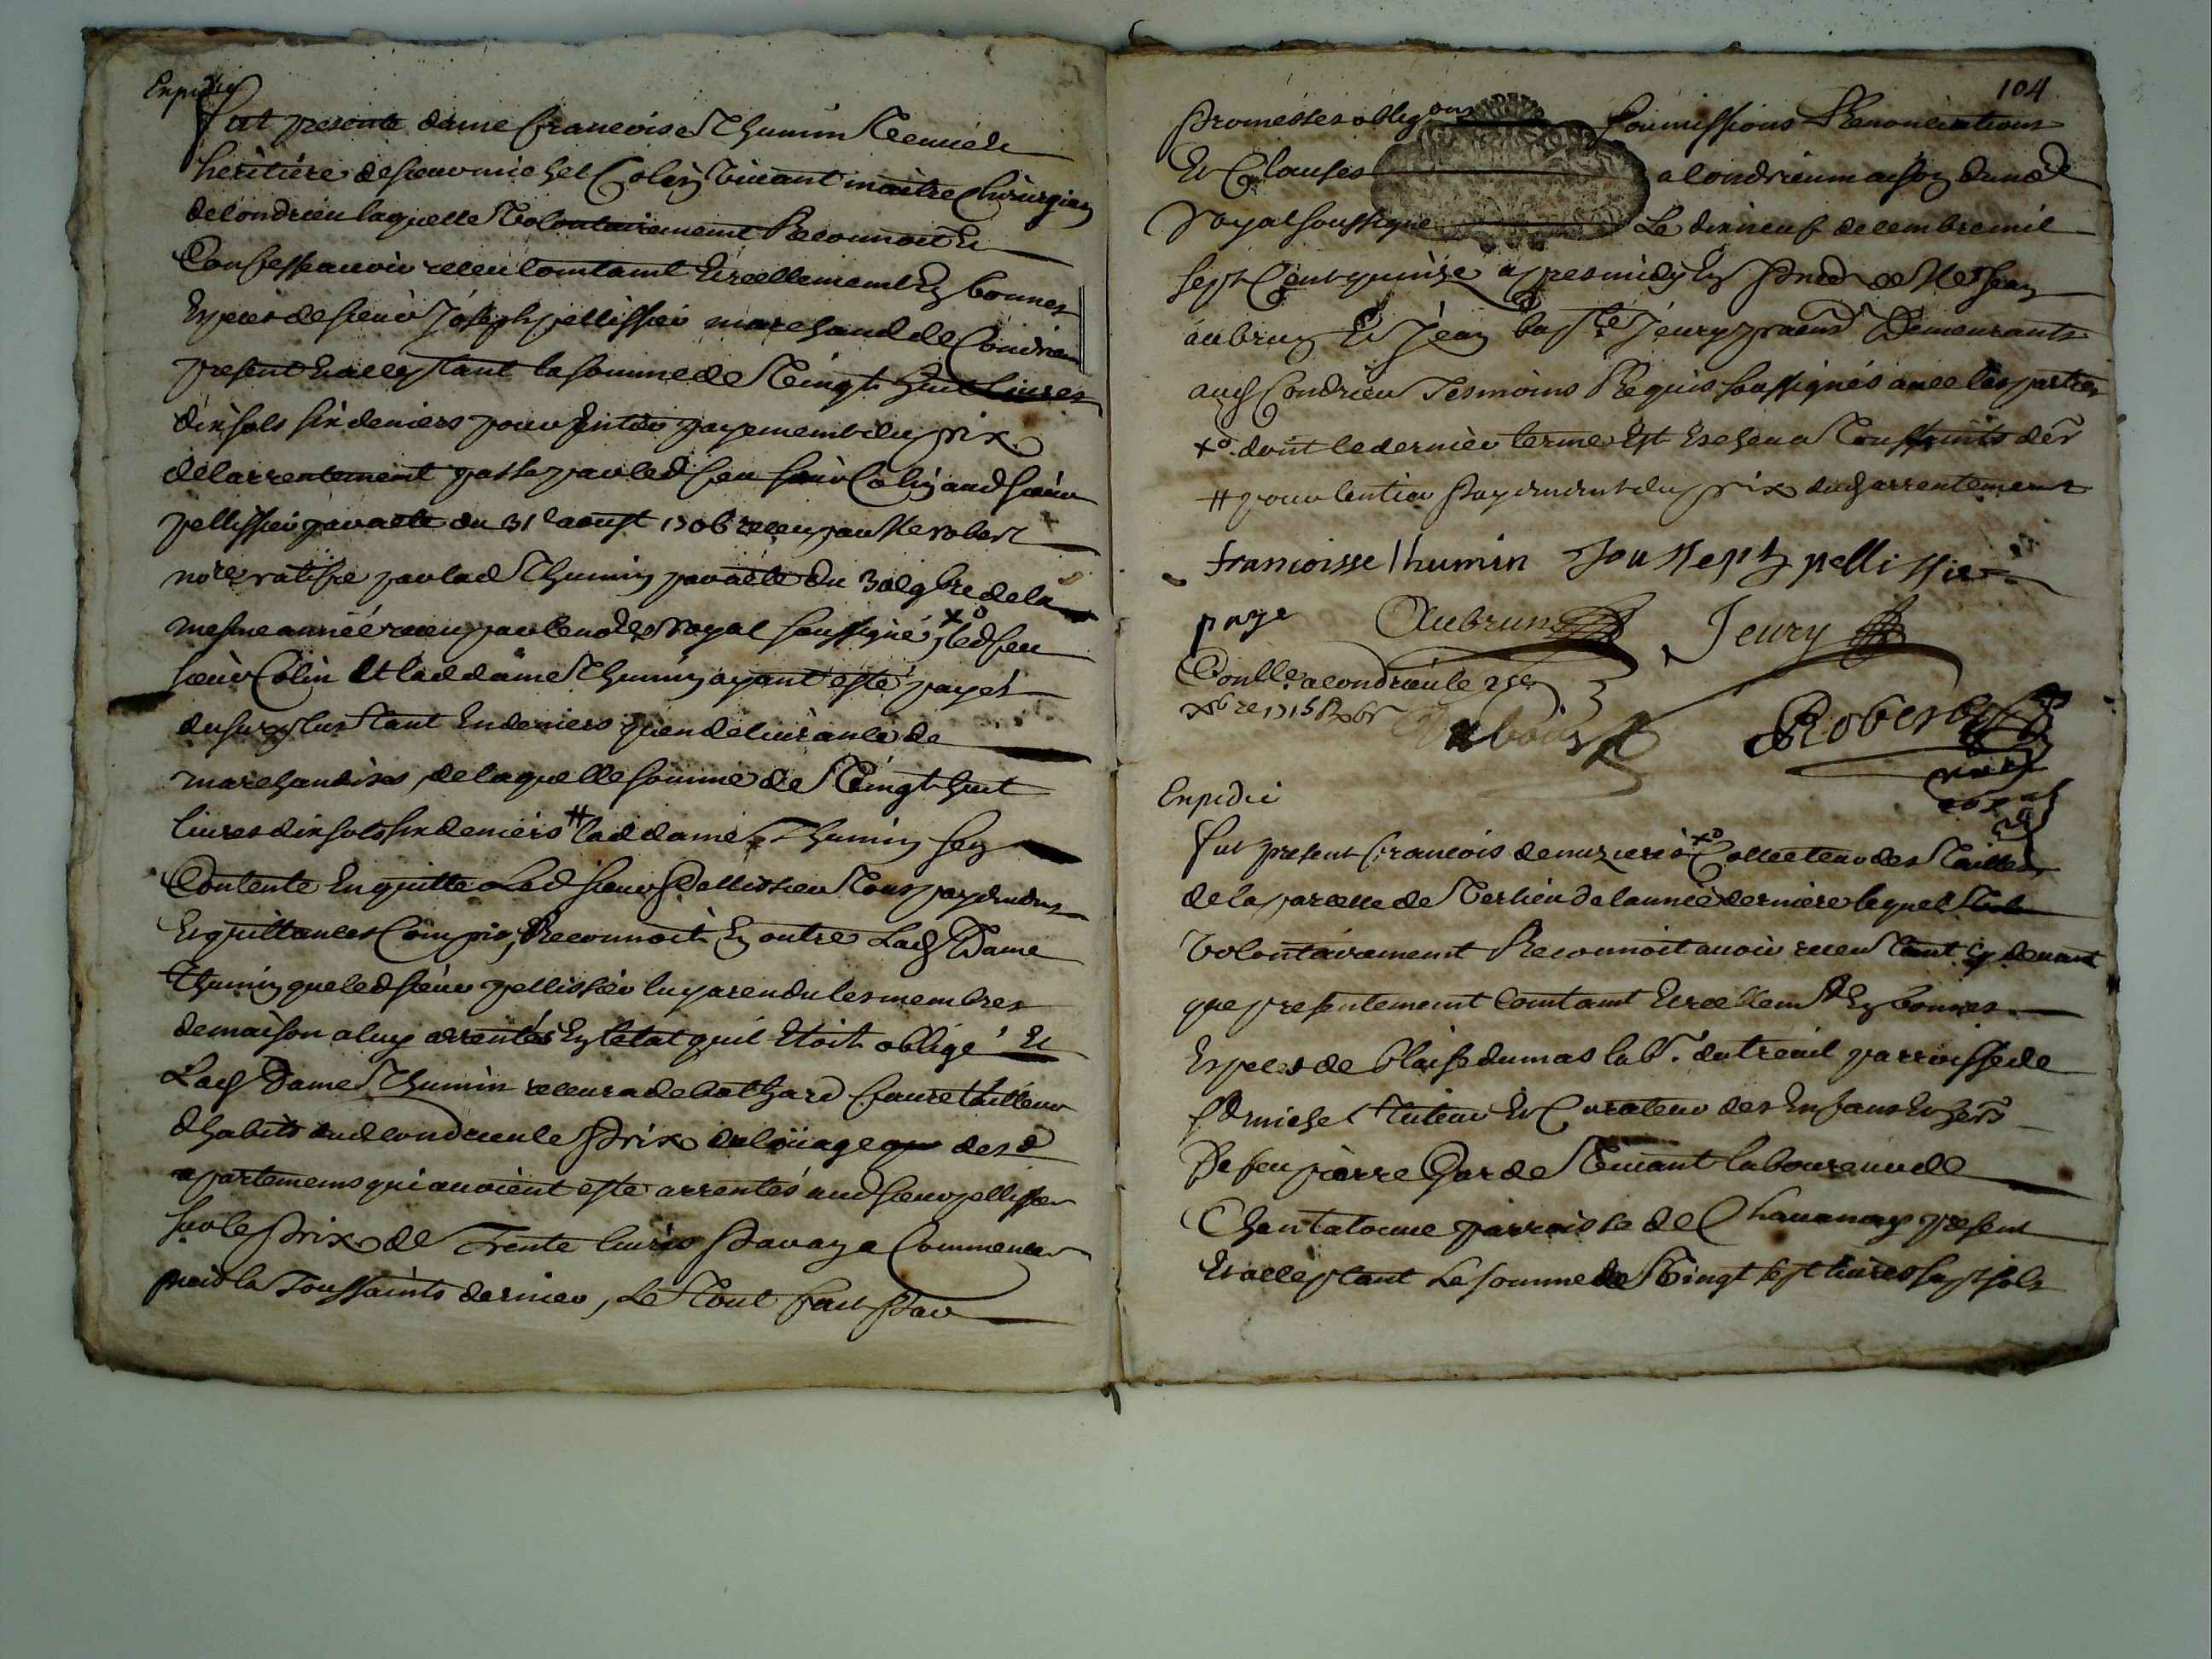 Expedié
fut presente dame francoise Thumin veuve &
heritiere de sieur michel Colin vivant maitre chirurgien
de Condrieu laquelle volontairement Reconnoit Et
Confesse avoir receu Comtamt Et reellement En bonnes
Especes de sieur Joseph pellissier marchand de Condrieu
present Et acceptant la somme de Vingt huit Livres
dix sols six deniers pour Entier payement du prix
de larrentement passé par led feu sieur Colin aud sieur
pellissier par acte du 31e aoust 1706 receu par Me robert
nore ratifié par lad Thumin par acte du 30e 9bre de la
mesme année receu par le nore Royal soussigné, xo led feu
sieur Colin Et lad dame Thumin ayant esté payés
du surplus tant En deniers qu'en delivrance de
marchandises, de laquelle somme de Vingt huit
livres dix sols six deniers # lad dame Thumin sen
Contente En quitte Led sieur Pellissieu tous payements
Et quittances Compris, Reconnoit En outre Lad Dame
Thumin que led sieur pellissier luy a rendu les membres
de maison a luy arrentés En letat quil Etoit obligé Et
Lad Dame Thumin recevra de balthard faure tailleur
d'habits dud Condrieu le Prix de loüage des d
apartemens qui avoient esté arrentés aud sieur pellissier
sur le Prix de Trente livres Par an a Commencer
puis la Toussaints dernier, Le Tout fait Par
104
Promesses obligons soumissions Renonciations
Et Clauses a Condrieu maison du nore
Royal soussigné Le dix neuf decembre mil
sept Cent quinze apres midy En Pnce de Me Jean
aubrun Et Jean bapte Jeury praens Demeurants
aud Condrieu Tesmoins Requis soussignés avec les parties
xo. dont le dernier terme Est Escheu a Toussaints der
# pour lentier Payement du prix dud arrentement
francoisse Thumin Jousseph pellissier
page Aubrun Jeury
Conlle a condrieu le 21e
xbre 1715 R
Dubois Robert
nore
royal
Expedié
fut present francois denuzieres xo Collecteur des Tailles
de la parcelle de Verlieu de lannée derniere lequel
volontairement Reconnoit avoir receu tant cy devant
que presentement Comtamt Et reellemt En bonnes
Especes de blaise dumas labr. du treuil parroisse de
st michel tuteur Et Curateur des Enfans Et hers
De feu pierre Garde Vivant laboureur de
Chantalouue parroisse de Chavanay present
Et acceptant Le somme de Vingt sept livres sept sols